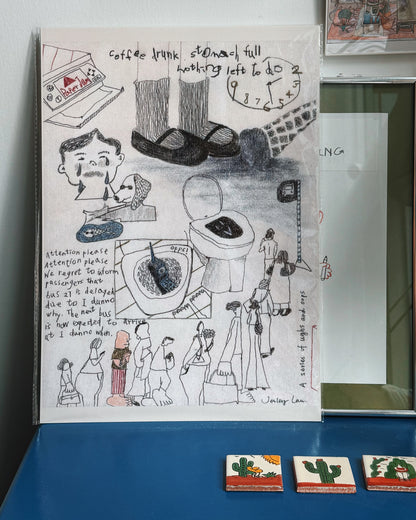 coffee drunk stomach full
nothing left to do
Attention please
Attention please
We regret to inform
passengers that
bus 21 is delayed
due to I dunno
why. The next bus
is now expected to arrive
at I dunno when.
A series of ughs and oops
NG